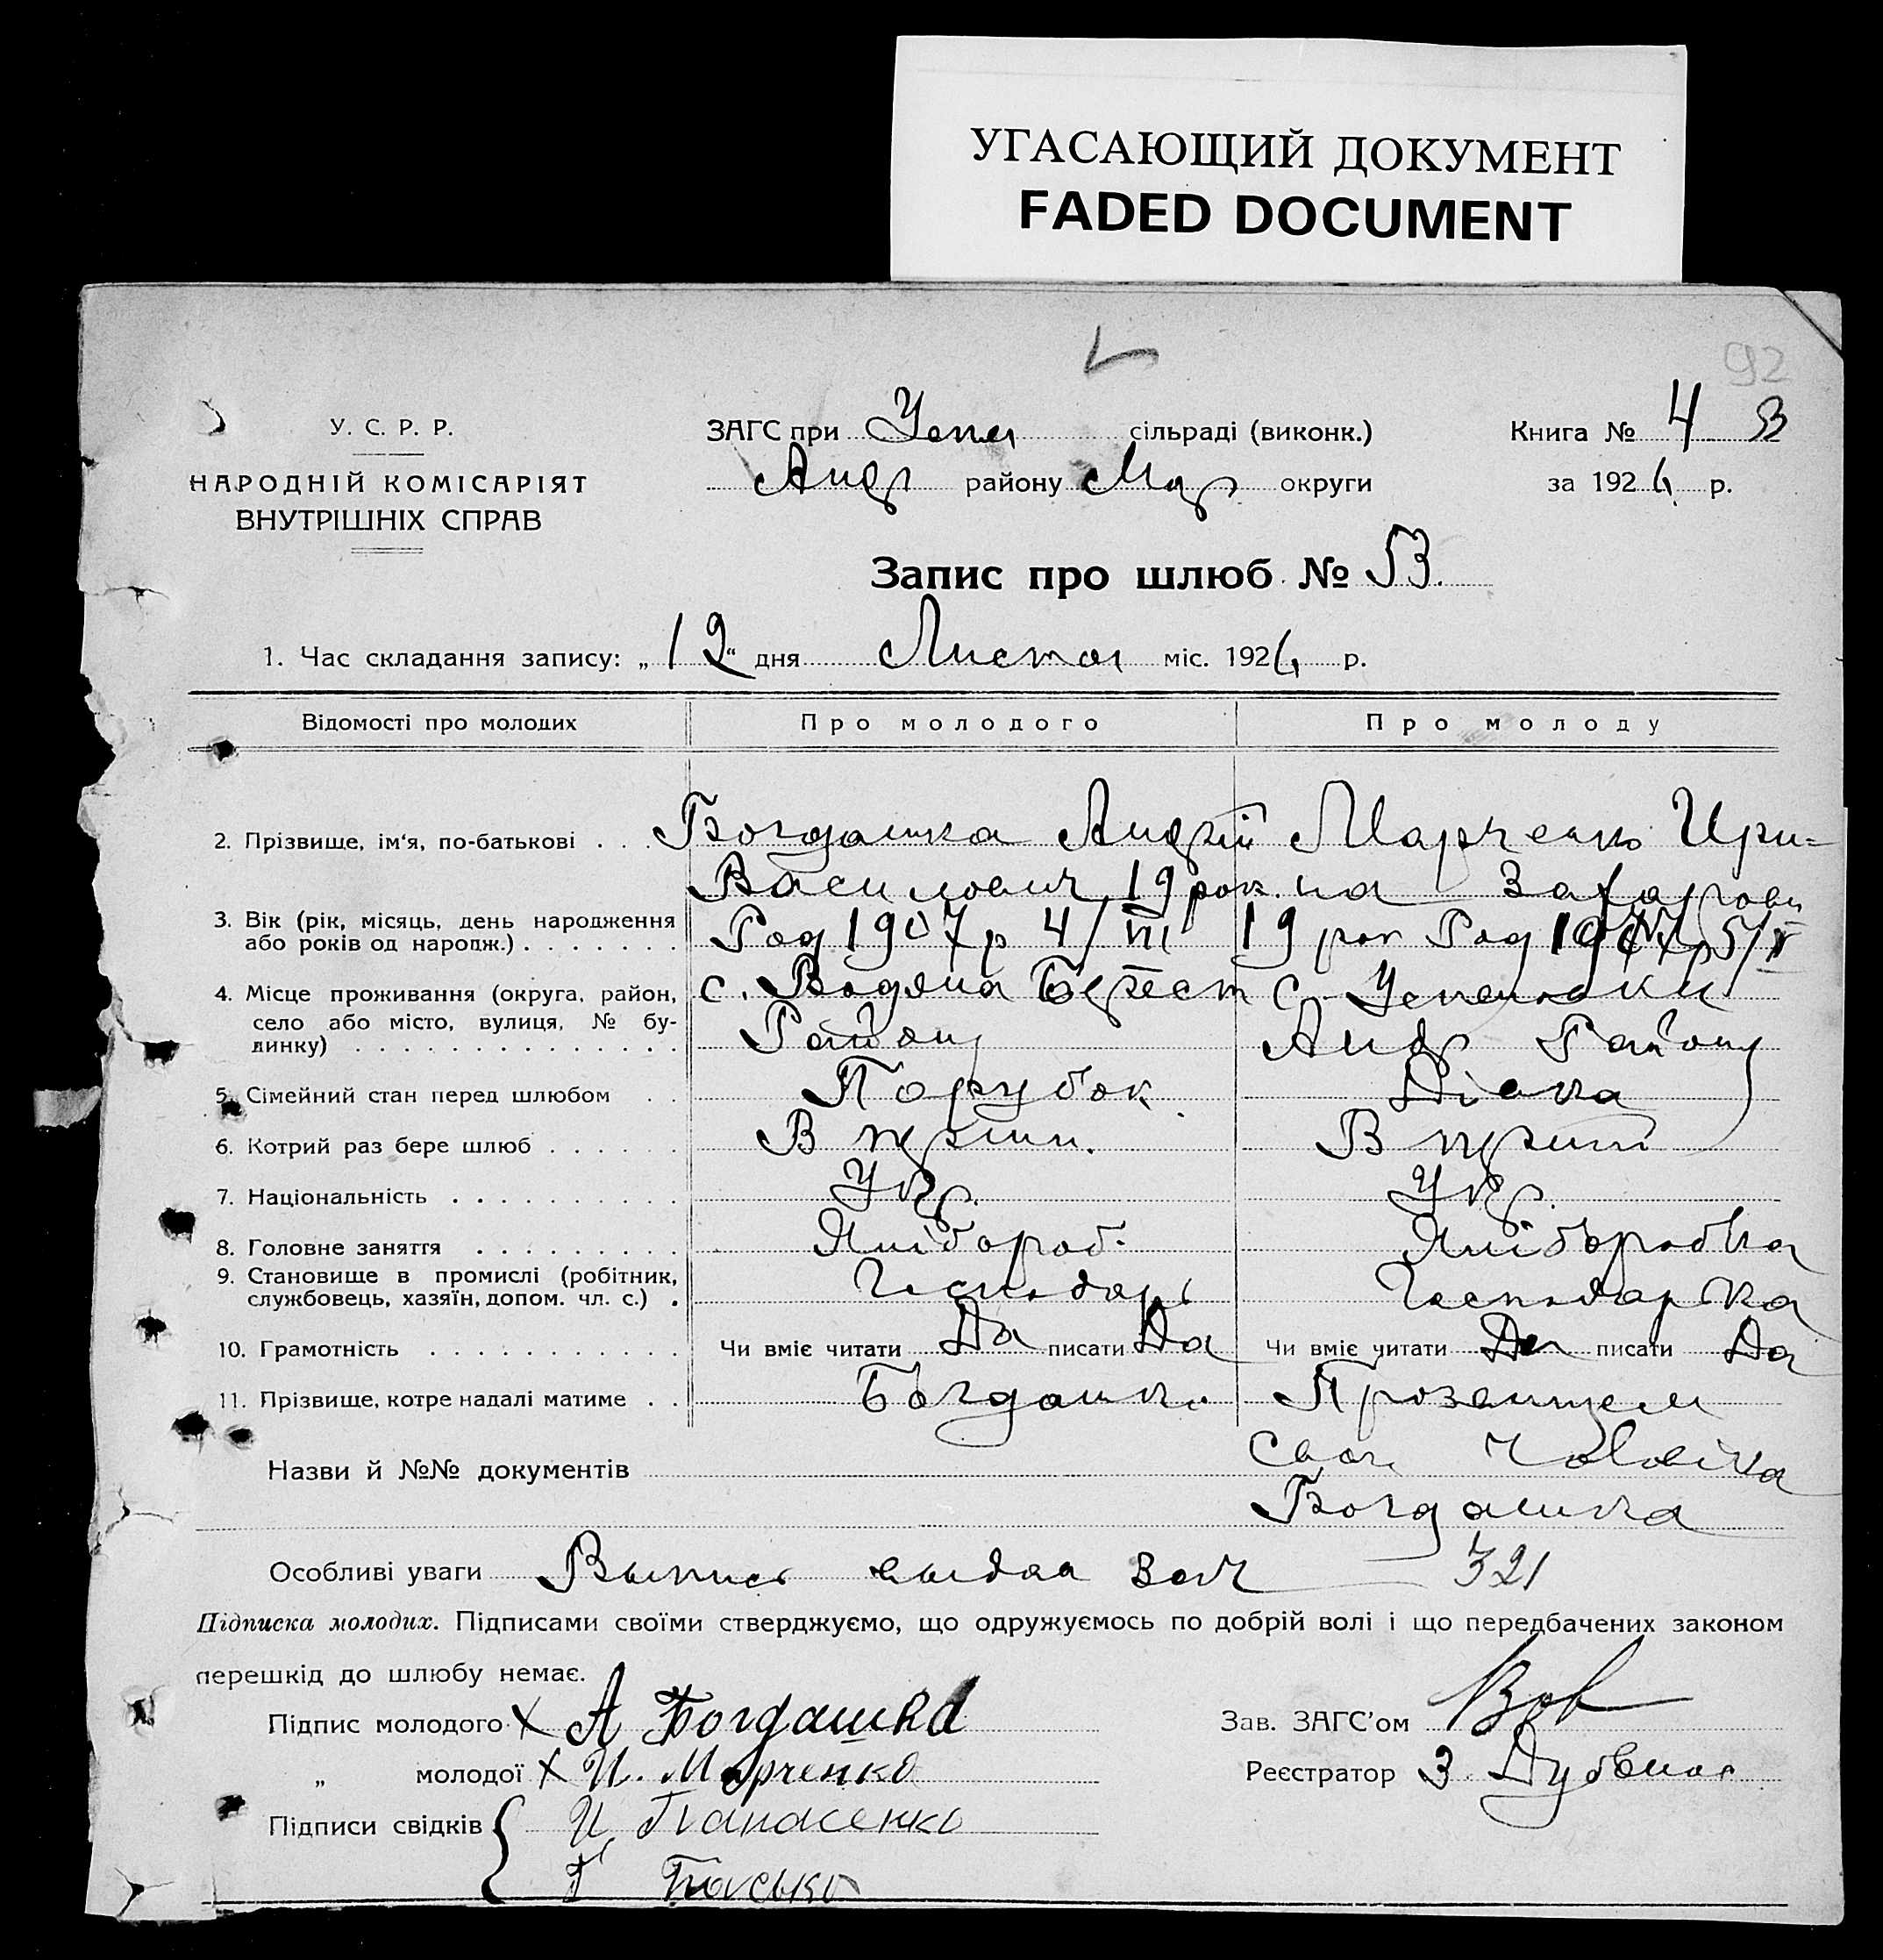 УГАСАЮЩИЙ ДОКУМЕНТ
FADED DOCUMENT
92
У. С. Р. Р.
НАРОДНІЙ КОМІСАРІЯТ
ВНУТРІШНІХ СПРАВ
ЗАГС при Успен сільраді (виконк.)
Андр району Мар округи
Книга № 4
за 1926 р.
Запис про шлюб № 53.
1. Час складання запису: „12“ дня Листоп міс. 1926 р.
Відомості про молодих Про молодого Про молоду
2. Прізвище, ім'я, по-батькові . . . Богдашка Андрій Марченко Ири=
Василович 19 рок. на Захаровн
3. Вік (рік, місяць, день народження
або років од народж.) . . . . . . . Род 1907 р 4/VIII 19 рок Род 1907 р 5/V
4. Місце проживання (округа, район, с. Водяна Берест с. Успеновки
село або місто, вулиця, № бу-
динку) . . . . . . . . . . . . . . Району Андр Району
5. Сімейний стан перед шлюбом . . Порубок Дівка
6. Котрий раз бере шлюб . . . . . . В перши. В перший
7. Національність . . . . . . . . . . Укр. Укр.
8. Головне заняття . . . . . . . . . Хлібороб. Хлібофобка
9. Становище в промислі (робітник,
службовець, хазяїн, допом. чл. с.) . Господарь Господарька
10. Грамотність . . . . . . . . . . . Чи вміє читати Да писати Да Чи вміє читати Да писати Да
11. Прізвище, котре надалі матиме . . Богдашка Прозвищем
свог чоловіка
Назви й №№ документів
Богдашка
Особливі уваги Выпись выдан 321
Підписка молодих. Підписами своїми стверджуємо, що одружуємось по добрій волі і що передбачених законом
перешкід до шлюбу немає.
Підпис молодого х А Богдашка Зав. ЗАГС'ом
„ молодої х И. Марченко Реєстратор З.
Підписи свідків И. Панасенко